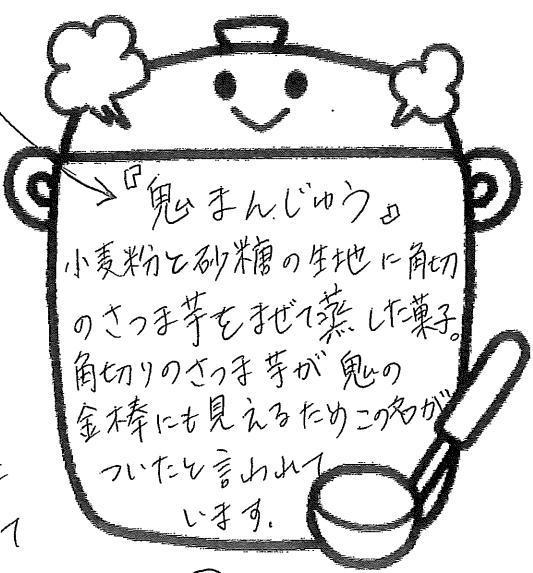 『鬼まんじゅう』
小麦粉と砂糖の生地に角切
のさつま芋をまぜて蒸した菓子。
角切りのさつま芋が鬼の
金棒にも見えるためこの名が
ついたと言われて
います.
て